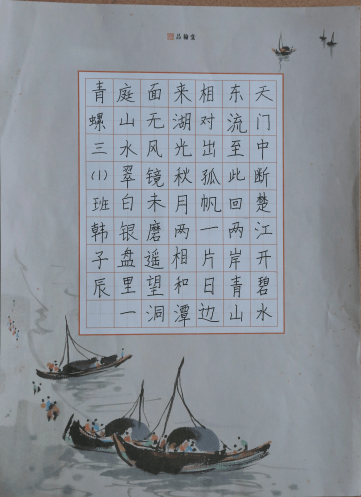 品翰堂
天门中断楚江开碧水
东流至此回两岸青山
相对出孤帆一片日边
来湖光秋月两相和潭
面无风镜未磨遥望洞
庭山水翠白银盘里一
青螺三(1)班韩子辰